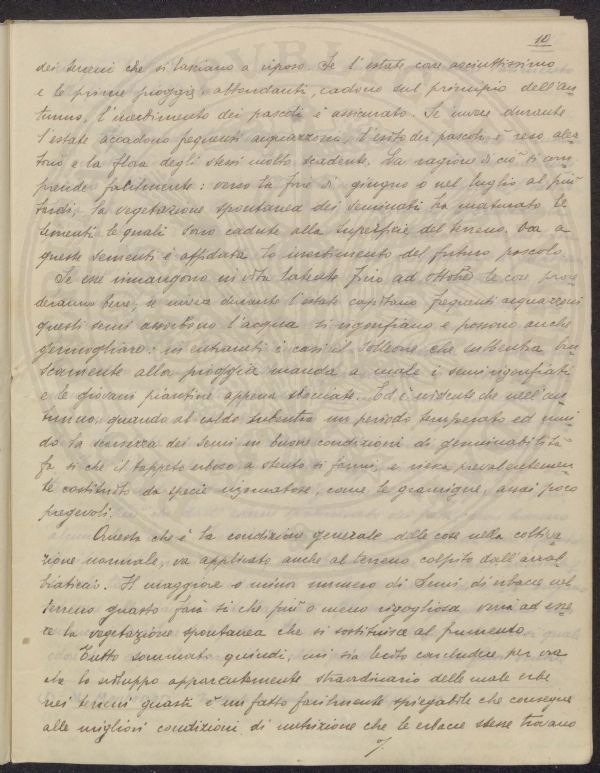 10
dei terreni che si lasciano a riposo. Se l'estate corre asciuttissimo
e le prime pioggie, abbondanti, cadono sul principio dell'au-
tunno, l'inerbimento dei pascoli è assicurato. Se invece durante
l'estate accadono frequenti acquazzoni, l'esito dei pascoli, è reso alea-
torio e la flora degli stessi molto scadente. La ragione di ciò si com-
prende facilmente: verso la fine di giugno o nel luglio al più
tardi, la vegetazione spontanea dei seminati ha maturato le
sementi le quali sono cadute alla superficie del terreno. Ora a
queste sementi è affidato lo inerbimento del futuro pascolo.
Se esse rimangono in vita latente fino ad ottobre le cose proce-
deranno bene; se invece durante l'estate capitano frequenti acquazzoni
questi semi assorbono l'acqua si rigonfiano e possono anche
germogliare: in entrambi i casi il solleone che subentra bru-
scamente alla pioggia manda a male i semi rigonfiati
e le giovani piantine appena sbocciate. Ed è evidente che nell'au-
tunno, quando al caldo subentra un periodo temperato ed umi-
do la scarsezza dei semi in buone condizioni di germinabilità
fa si che il tappeto erboso a stento si formi, e riesca prevalentemen-
te costituito da specie rizomatose, come le gramigne, assai poco
pregevoli.
Questa che è la condizione generale delle cose nella coltiva-
zione normale, va applicato anche al terreno colpito dall'arrab-
biaticcio. Il maggiore o minor numero di semi di erbacce nel
terreno guasto farà si che più o meno rigogliosa verrà ad esse-
re la vegetazione spontanea che si sostituisce al frumento.
Tutto sommato quindi, mi sia lecito concludere per ora
che lo sviluppo apparentemente straordinario delle male erbe
nei terreni guasti è un fatto facilmente spiegabile che consegue
alle migliori condizioni di nutrizione che le erbacce stesse trovano